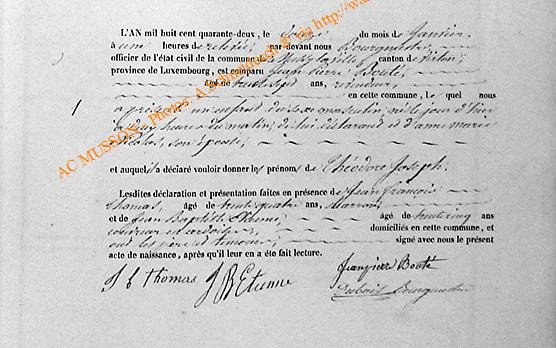 L'AN mil huit cent quarante-deux, le douze du mois de Janvier
à une heures de relevée, par-devant nous Bourgmestre
officier de l'état civil de la commune de canton de
province de Luxembourg, est comparu Jean Pierre Bouté,
âgé de trente sept ans,
en cette commune, Le quel nous
a présenté un enfant du sexe masculin, né le jour d'hier
à dix heures du matin, de lui déclarant et d'anne marie
son épouse,
et auquel il a déclaré vouloir donner les prénoms de Théodore Joseph.
Lesdites déclaration et présentation faites en présence de Jean françois
Thomas, âgé de trente quatre ans,
et de Jean Baptiste Etienne, âgé de trente cinq ans
couvreur en ardoises domiciliés en cette commune, et
ont les père et témoins, signé avec nous le présent
acte de naissance, après qu'il leur en a été fait lecture.
J f Thomas J B Etienne Jeanpierr Bouté
Bourgmestre
AC MUSSON - Photos: A. via http://w